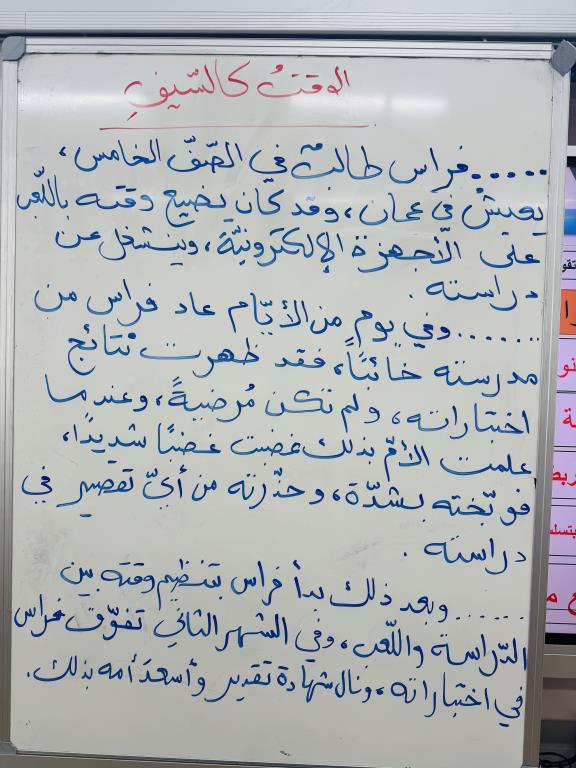 الوقتُ كالسّيفِ
......فراس طالبٌ في الصّفّ الخامس،
يعيشُ في عمان، وقد كان يضيع وقته باللّعب
على الأجهزة الإلكترونيّة، وينشغل عن
دراسته.
.......وفي يوم من الأيّام عاد فراس من
مدرسته خائبًا، فقد ظهرت نتائج
اختباراته، ولم تكن مُرضيةً، وعندما
علمت الأمّ بذلك غضبت غضبًا شديدًا،
فوبّخته بشدّة، وحذّرته من أيّ تقصير في
دراسته.
......وبعد ذلك بدأ فراس بتنظيم وقته بين
الدّراسة واللّعب، وفي الشهر الثاني تفوّق فراس
في اختباراته، ونال شهادة تقدير وأسعدَ أمه بذلك.